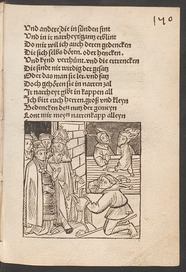 140
Vnd andere die in sünden sint
Vnd in ir narrheyt gantz erblint
Do mit will ich auch deren gedencken
Die sich selbs döten, oder hencken,
Vnd kynd verthünt, vnd die ertrencken
Die sindt nit wirdig der gsatz
Oder das man sie ler, vnd satz
Doch gehören sie in narren zal
Ir narrheyt gibt in kappen all
Ich bitt euch herren groß vnd kleyn
Bedencken den nutz der gemeyn
Lont mir meyn narrenkapp alleyn